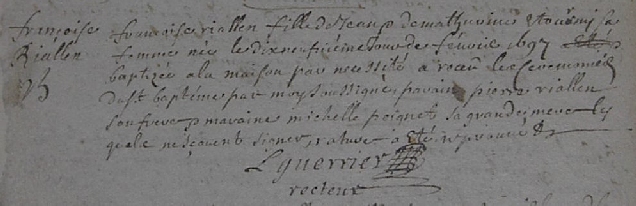 françoise
Riallen
françoise riallen fille de Jean p de mathurine sa
femme née le dix neufvieme Jour de feuvrie 1697
baptizée a la maison par nessité a receu les ceremonies
dust baptéme par moy soussigné parain pierre riallen
son frere p maraine michelle poignet sa grande mere les
quels ne scavent signer rature
L guerrier
recteur